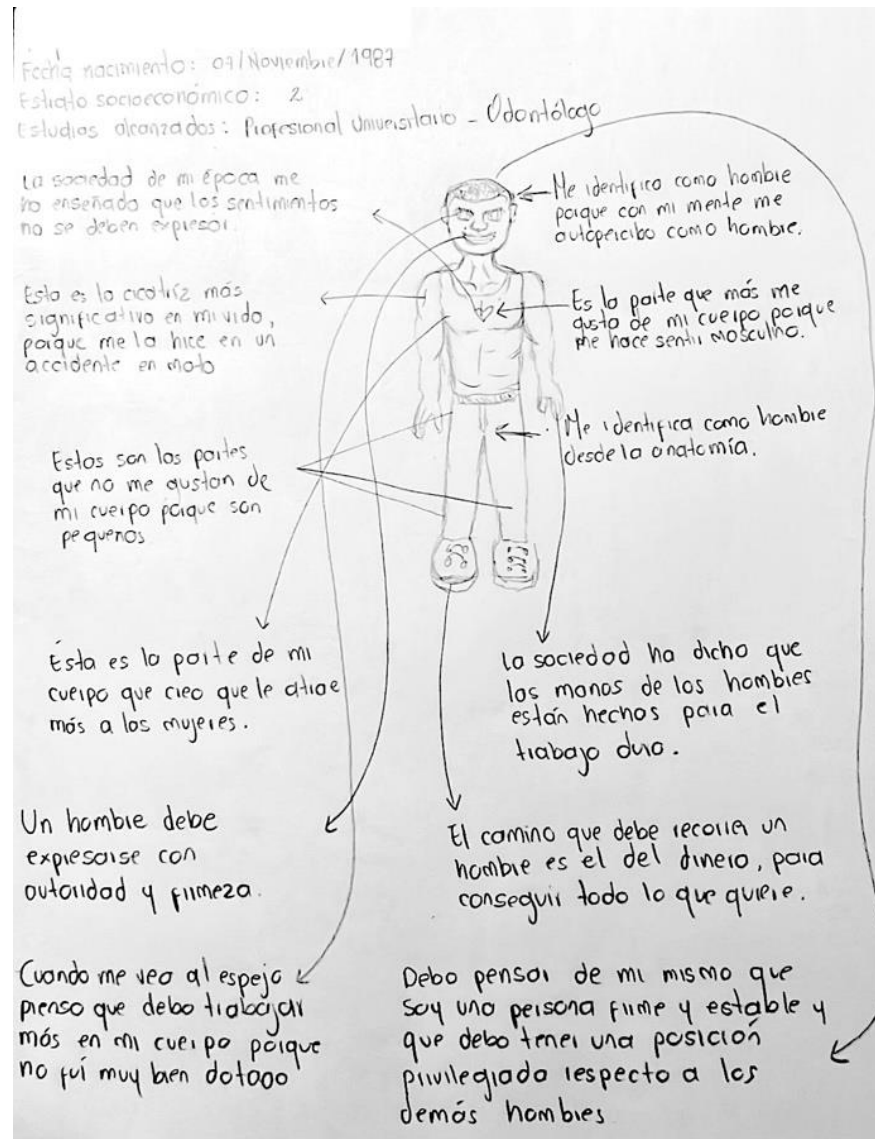 Fecha nacimiento: 07/Noviembre/1987
Estrato socioeconómico: 2
Estudios alcanzados: Profesional Universitario - Odontólogo
La sociedad de mi época me
ha enseñado que los sentimientos
no se deben expresar.
Me identifico como hombre
porque con mi mente me
autopercibo como hombre.
Esta es la cicatríz más
significativa en mi vida,
porque me la hice en un
accidente en moto
Es la parte que más me
gusta de mi cuerpo porque
me hace sentir masculino.
Me identifica como hombre
desde la anatomía.
Estas son las partes
que no me gustan de
mi cuerpo porque son
pequeños
Esta es la parte de mi
cuerpo que creo que le atrae
más a las mujeres.
La sociedad ha dicho que
las manos de los hombres
están hechas para el
trabajo duro.
Un hombre debe
expresarse con
autoridad y firmeza.
El camino que debe recorrer un
hombre es el del dinero, para
conseguir todo lo que quiere.
Cuando me veo al espejo
pienso que debo trabajar
más en mi cuerpo porque
no fuí muy bien dotado
Debo pensar de mi mismo que
soy una persona firme y estable y
que debo tener una posición
privilegiada respecto a los
demás hombres